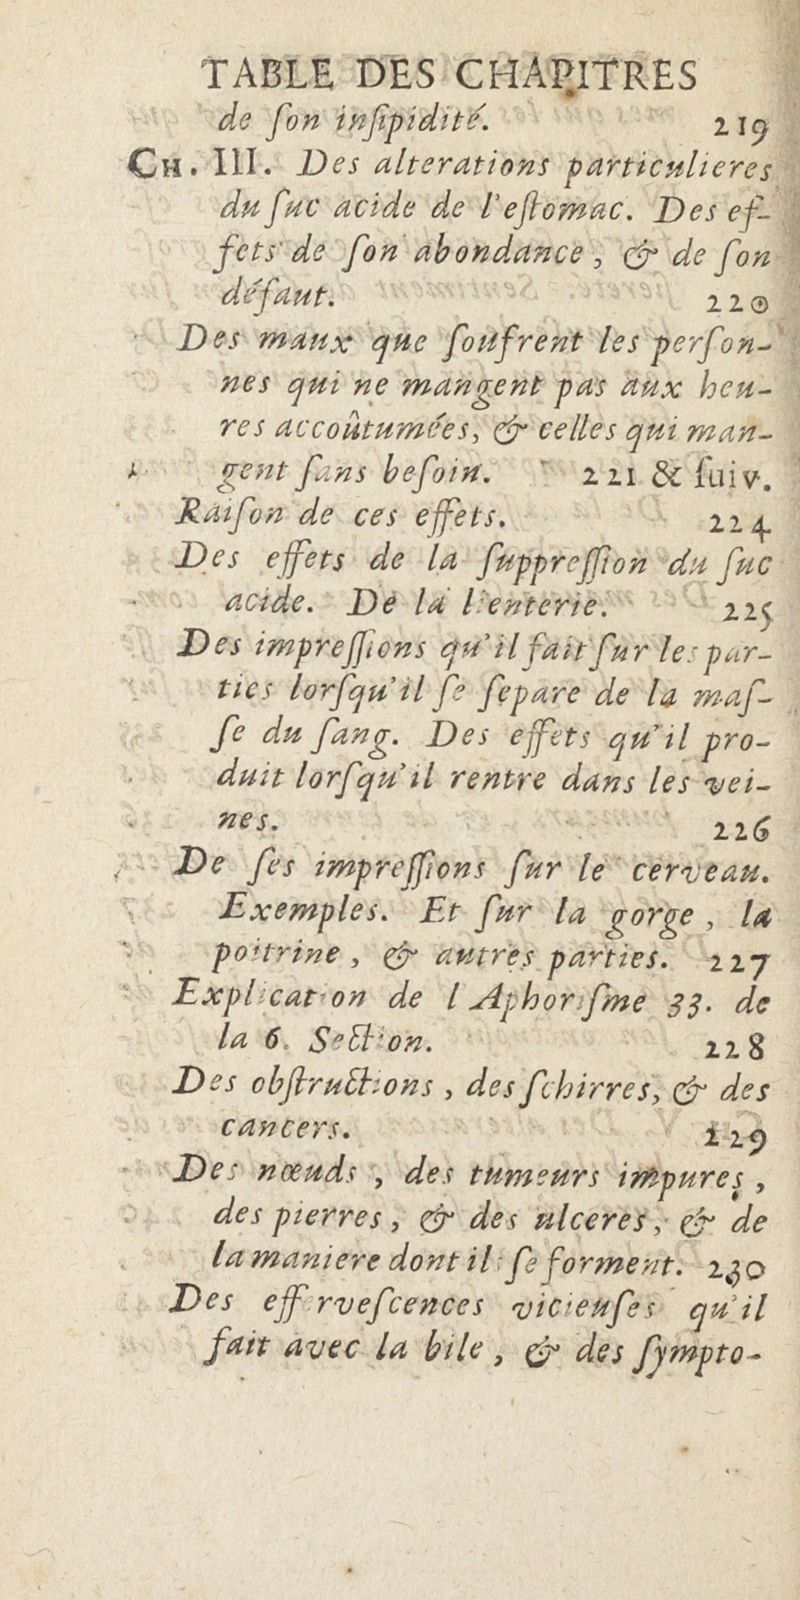 TABLE DES CHAPITRES
de ſon inſipidité. 219
CH. III. Des alterations particulieres
du ſuc acide de l'eſtomac. Des ef-
fets de ſon abondance, & de ſon
défaut. 220
Des maux que ſoufrent les perſon-
nes qui ne mangent pas aux heu-
res accoûtumées, & celles qui man-
gent ſans beſoin. 221 & ſuiv.
Raiſon de ces effets. 224
Des effets de la ſuppreſſion du ſuc
acide. De la lienterie. 225
Des impreſſions qu'il fait ſur les par-
ties lorſqu'il ſe ſepare de la maſ-
ſe du ſang. Des effets qu'il pro-
duit lorſqu'il rentre dans les vei-
nes. 226
De ſes impreſſions ſur le cerveau.
Exemples. Et ſur la gorge, la
poitrine, & autres parties. 227
Explication de l Aphoriſme 33. de
la 6. Section. 228
Des obſtructions, des ſchirres, & des
cancers. 229
Des nœuds, des tumeurs impures,
des pierres, & des ulceres, & de
la maniere dont ils ſe forment. 230
Des efferveſcences vicieuſes qu'il
fait avec la bile, & des ſympto-